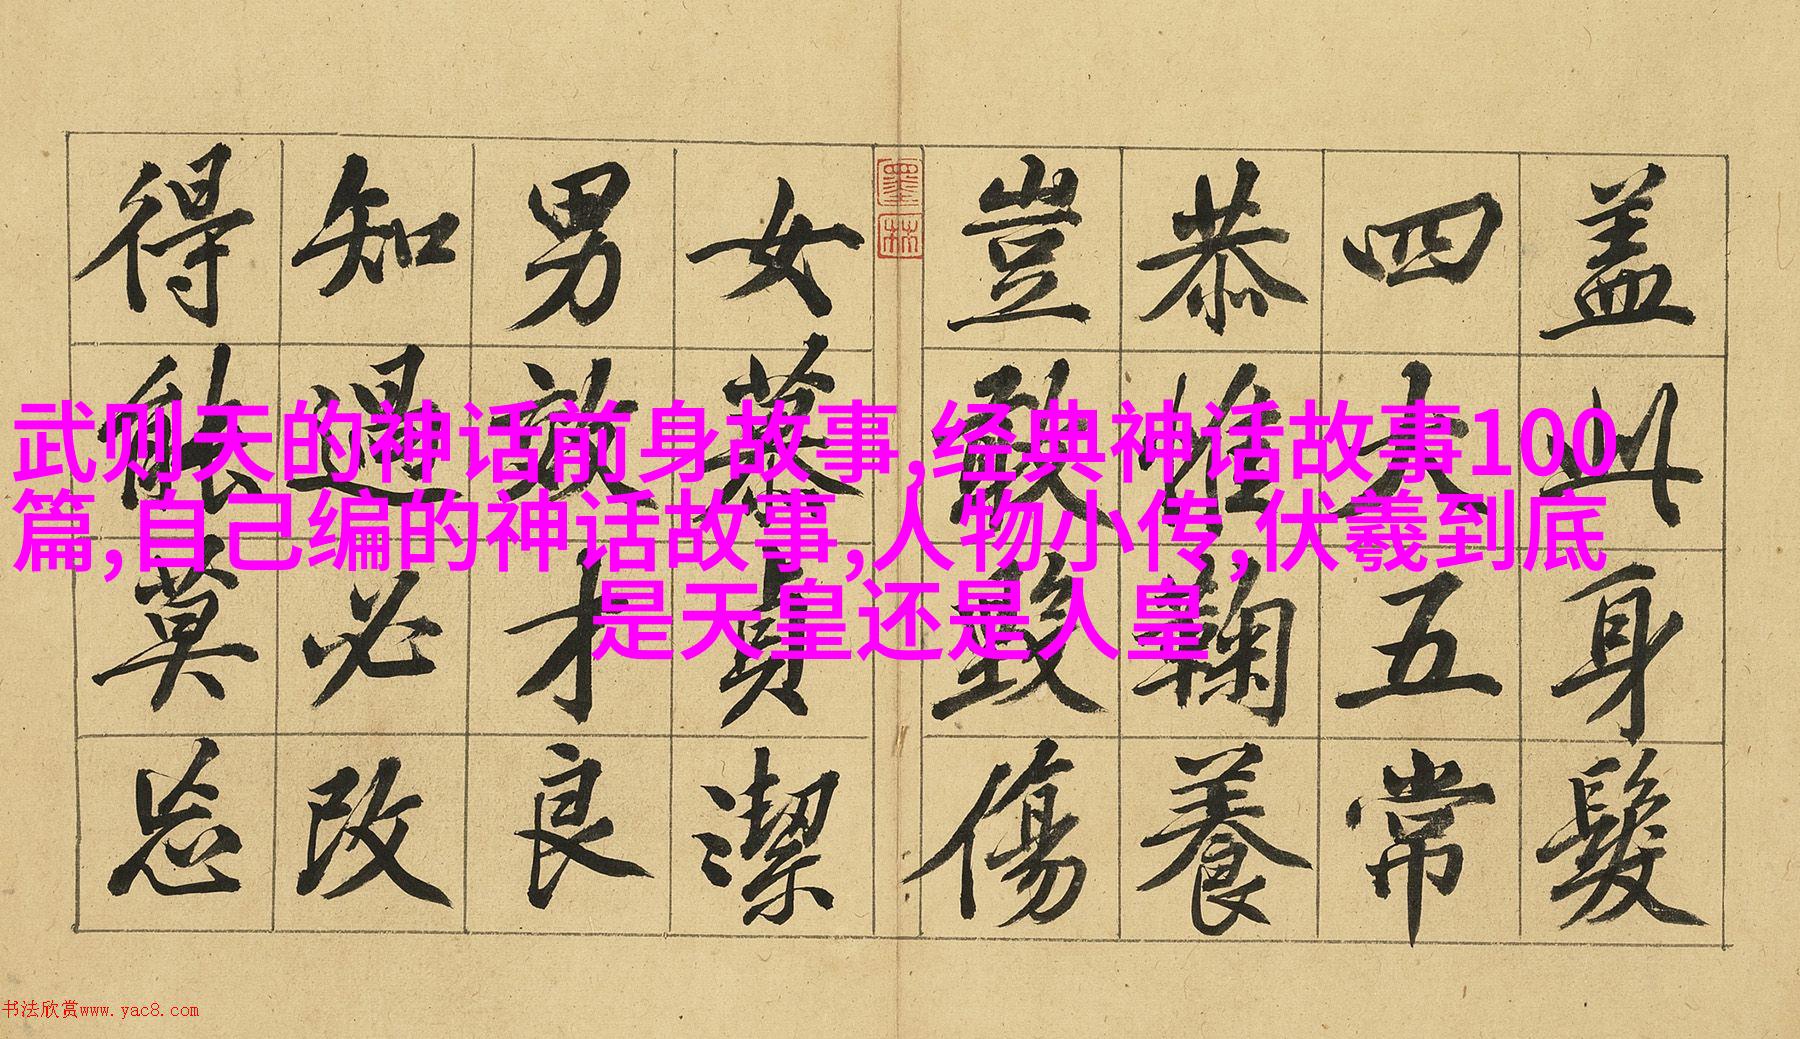 武则天的神话前身故事,经典神话故事100
篇,自己编的神话故事,人物小传,伏羲到底
是天皇还是人皇
盖此身髮
四大五常
恭惟鞠養
豈敢毀傷
墨林
女慕貞潔
男效才良
知過必改
得能莫忘
书法欣赏www.yac8.com